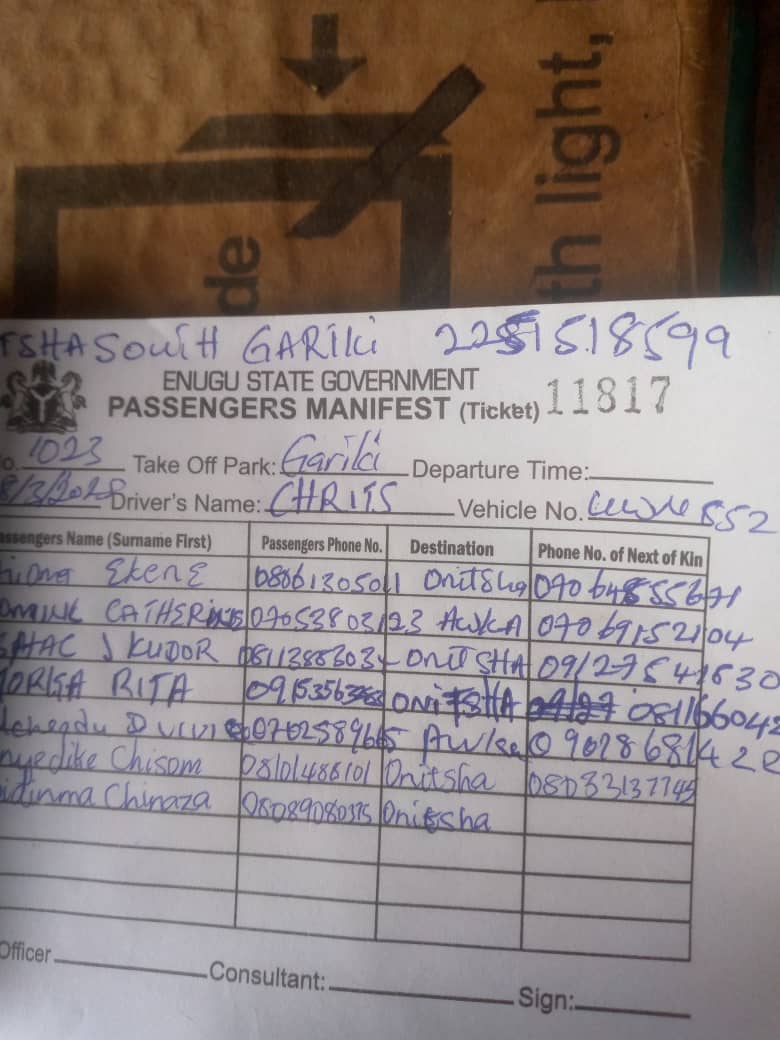 de
th light,
TSHA SOUTH GARIKI 2251518599
ENUGU STATE GOVERNMENT
PASSENGERS MANIFEST (Ticket) 11817
o. 1023 Take Off Park: Gariki Departure Time:
8/3/2028 Driver's Name: CHRITS Vehicle No. 852
assengers Name (Surname First) Passengers Phone No. Destination Phone No. of Next of Kin
EKENE Onitsha
CATHERINE 07053803123 AWKA 07069152104
J KUDOR ONITSHA 09127541630
RITA ONITSHA 081166042
Awka
nyedike Chisom 08101486101 Onitsha 08033137745
idinma Chinaza 08089080375 Onitsha
Officer Consultant: Sign: